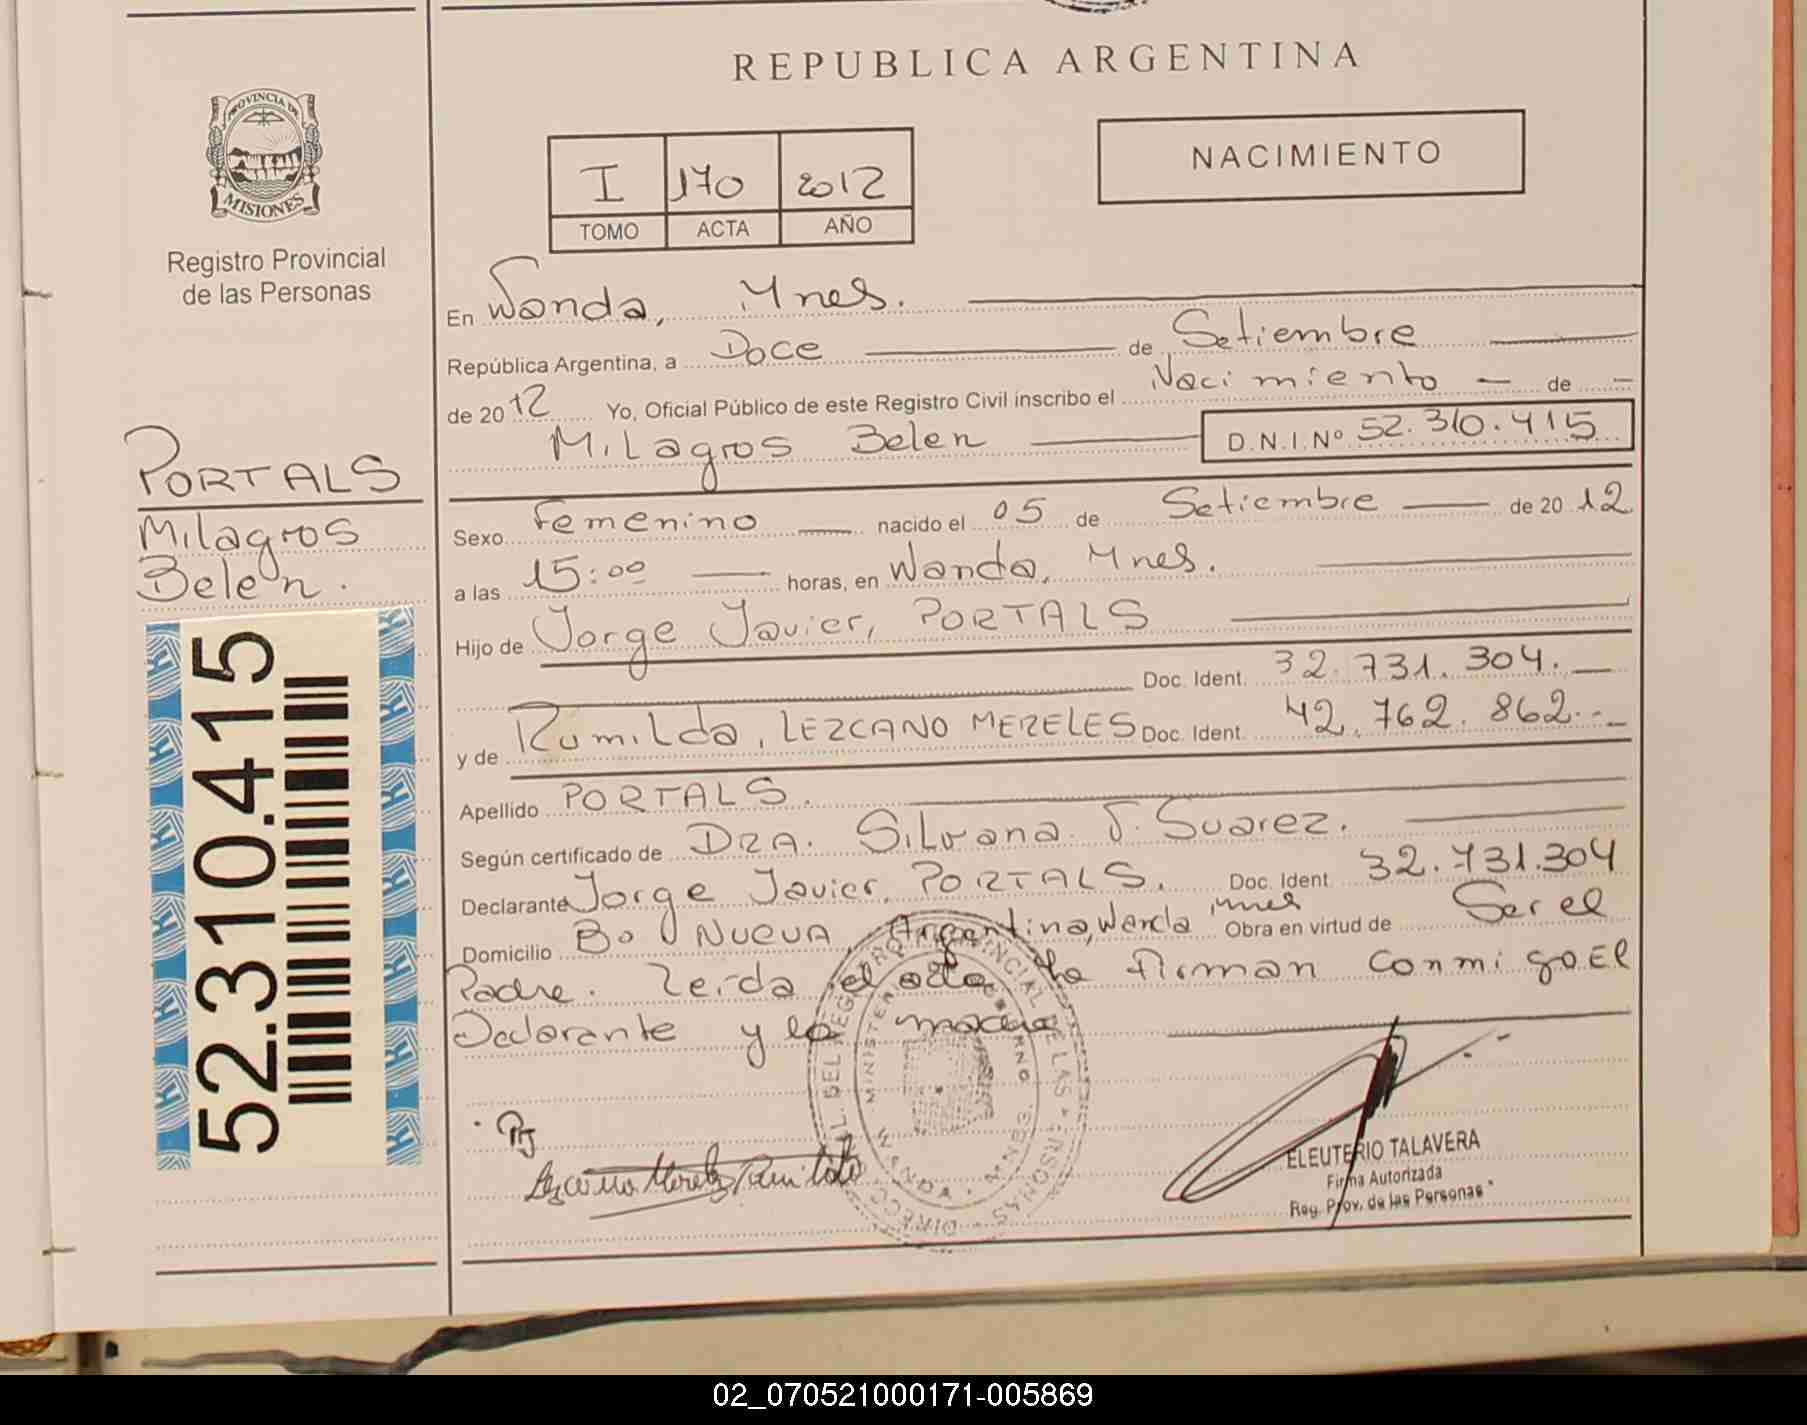 REPUBLICA ARGENTINA
PROVINCIA DE
MISIONES
Registro Provincial
de las Personas
I 170 2012
TOMO ACTA AÑO
NACIMIENTO
En Wanda, Mnes.
República Argentina, a Doce de Setiembre
de 2012 Yo, Oficial Público de este Registro Civil inscribo el Nacimiento de
Milagros Belen D.N.I.Nº 52.310.415
PORTALS
Milagros
Belen.
52.310.415
Sexo Femenino nacido el 05 de Setiembre de 2012
a las 15:00 horas, en Wanda, Mnes.
Hijo de Jorge Javier, PORTALS
Doc. Ident. 32.731.304.
y de Rumilda, LEZCANO MERELES Doc. Ident. 42.762.862.
Apellido PORTALS.
Según certificado de DRA. Silvana J. Suarez.
Declarante Jorge Javier, PORTALS. Doc. Ident. 32.731.304
Domicilio Bo Nueva Argentina, Wanda Mnes Obra en virtud de Ser el
Padre. Leida el acta la firman conmigo El
Declarante y la madre
DIRECC. GRAL. DEL REGISTRO PROVINCIAL DE LAS PERSONAS
MINISTERIO GOBIERNO
WANDA - MNES.
PJ
Lezcano Mereles Rumilda
ELEUTERIO TALAVERA
Firma Autorizada
Reg. Prov. de las Personas
02_070521000171-005869